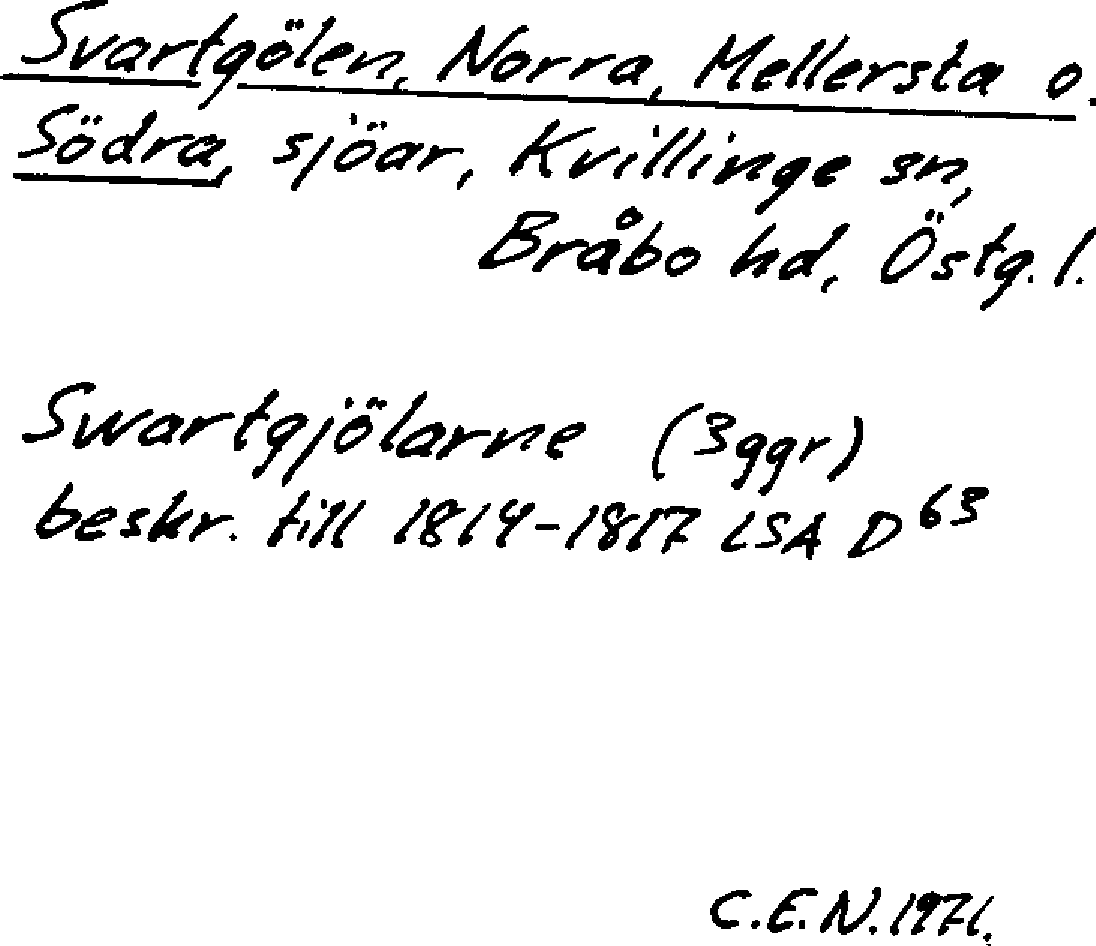 Svartgölen, Norra, Mellersta o.
Södra, sjöar, Kvillinge sn,
Bråbo hd, Östg. l.
Swartgjölarne (3ggr)
beskr. till 1814-1817 LSA D63
C.E.N. 1971.